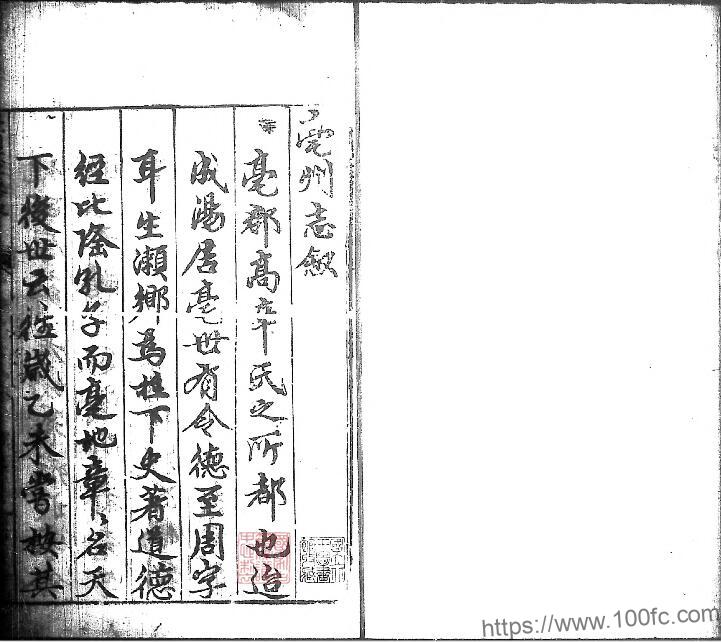 亳州志敘
亳郡高辛氏之所都也迨
成湯居亳世有令德至周字
耳生瀬鄉爲柱下史著道德
經比隆孔子而亳地章〻名天
下後世云徃歲乙未嘗按其
https://www.100fc.com